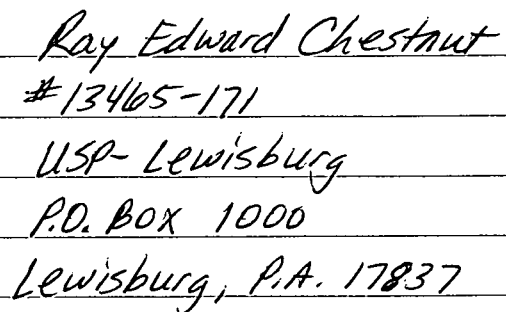 Ray Edward Chestnut
#13465-171
USP- Lewisburg
P.O. BOX 1000
Lewisburg, P.A. 17837